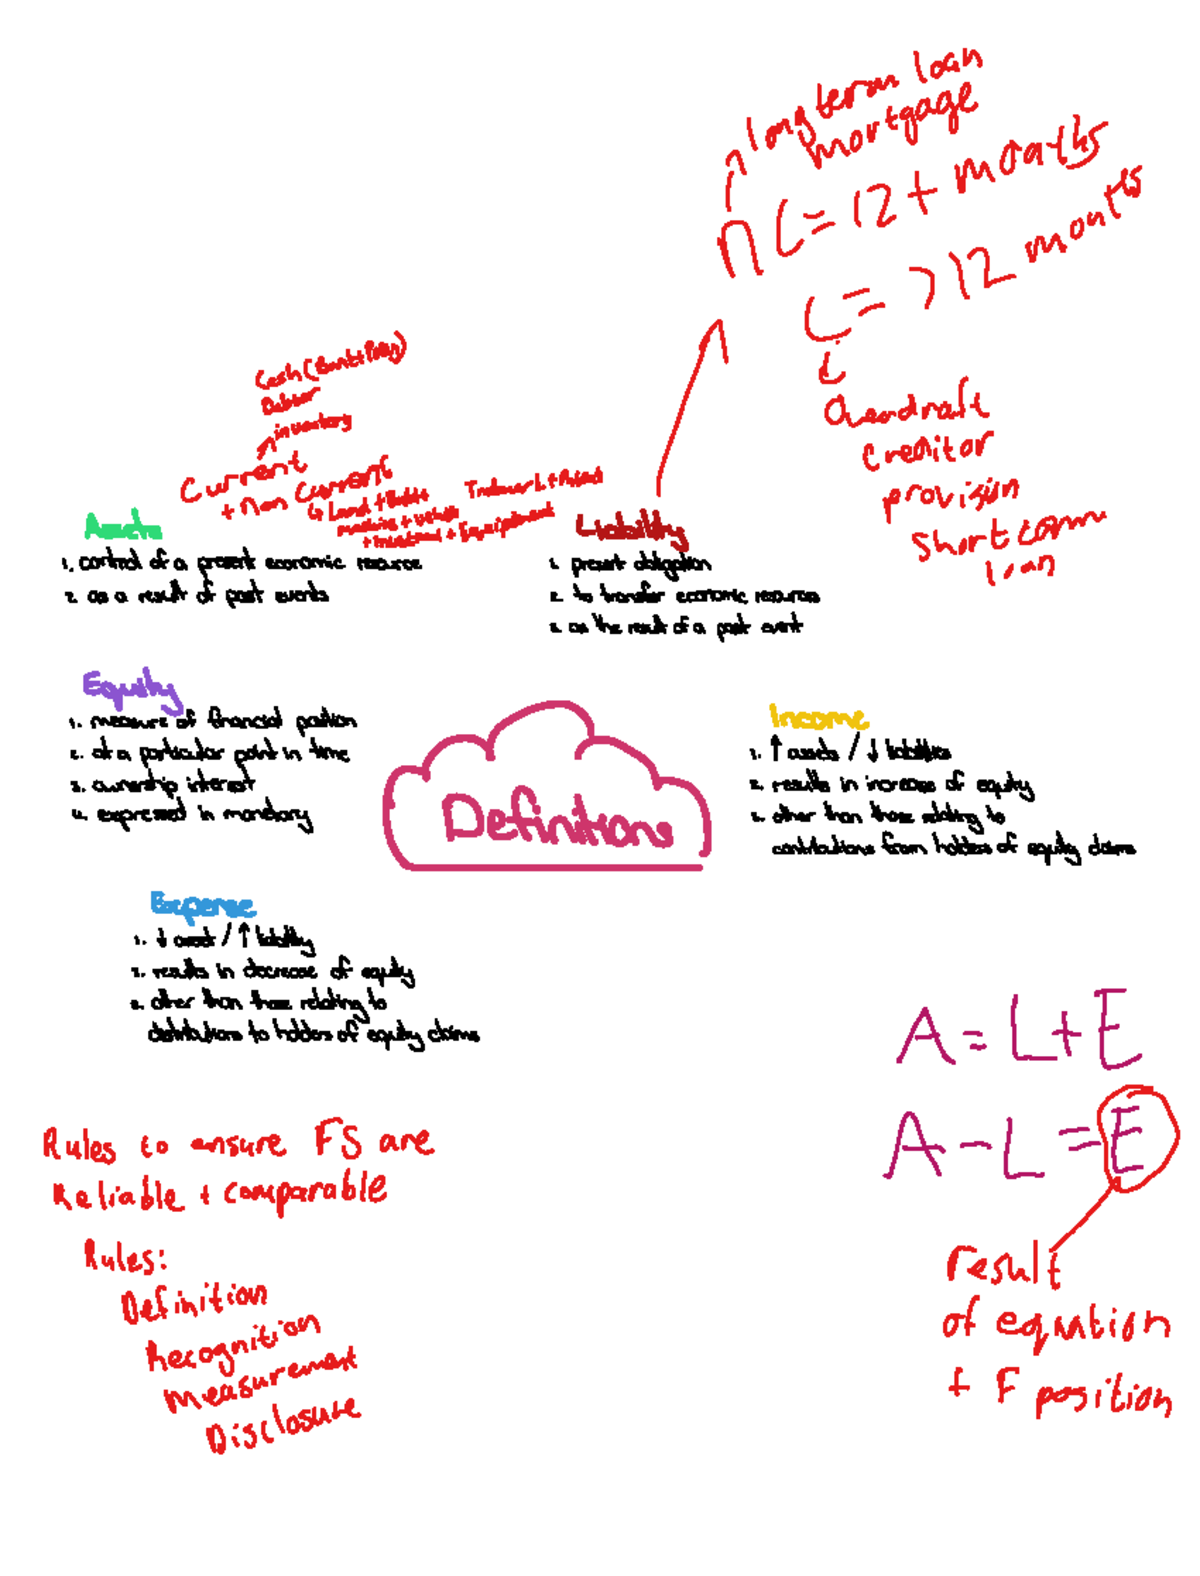 long term loan
mortgage
nC = 12 + months
C = > 12 months
Overdraft
creditor
provision
short term
loan
Cash (Bank + Petty)
Debtor
inventory
Current
+ Non Current
Land + Build
machine + vehicle
+ Investment + Equipment
Trademark + Patent
Assets
1. control of a present economic resource
2. as a result of past events
Liability
1. present obligation
2. to transfer economic resources
3. as the result of a past event
Equity
1. measure of financial position
2. at a particular point in time
3. ownership interest
4. expressed in monetary
Definitions
Income
1. ↑ assets / ↓ liabilities
2. results in increase of equity
3. other than those relating to
contributions from holders of equity claims
Expense
1. ↓ asset / ↑ liability
2. results in decrease of equity
3. other than those relating to
distributions to holders of equity claims
A = L + E
A - L = E
result
of equation
+ F position
Rules to ensure FS are
Reliable + comparable
Rules:
Definition
Recognition
Measurement
Disclosure